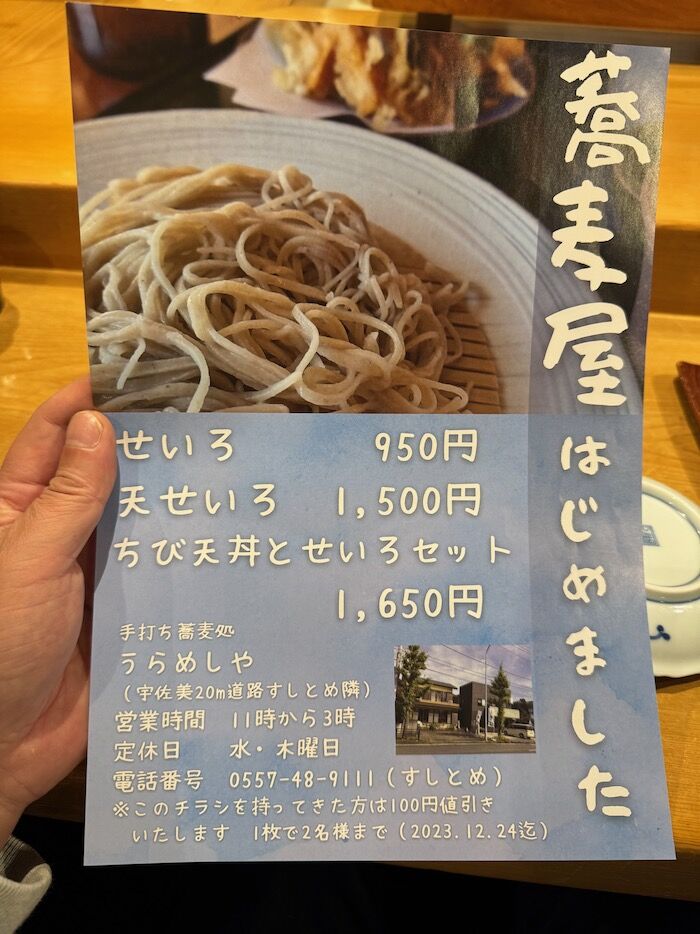 蕎麦屋はじめました
せいろ 950円
天せいろ 1,500円
ちび天丼とせいろセット
1,650円
手打ち蕎麦処
うらめしや
(宇佐美20m道路すしとめ隣)
営業時間 11時から3時
定休日 水・木曜日
電話番号 0557-48-9111(すしとめ)
※このチラシを持ってきた方は100円値引き
いたします 1枚で2名様まで(2023.12.24迄)